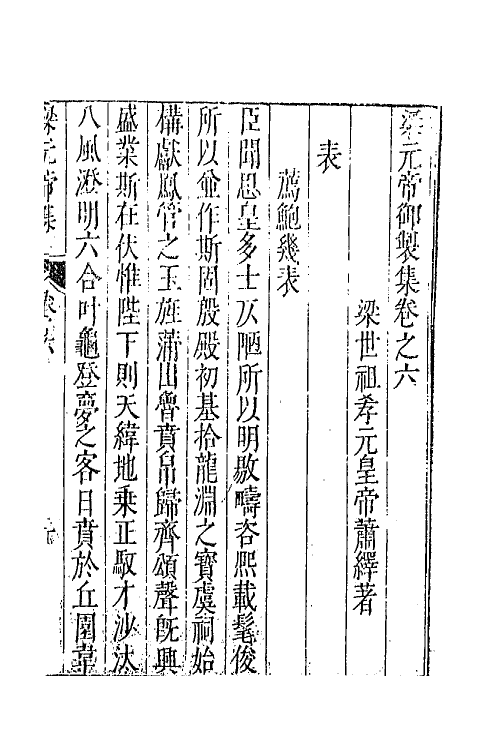 梁元帝御製集卷之六
梁世祖孝元皇帝蕭繹著
表
薦鮑幾表
臣聞思皇多士仄陋所以明敭疇咨熙載髦俊
所以並作斯固殷殿初基拾龍淵之寶虞祠始
構獻鳳管之玉旌蒲出魯賁帛歸齊頌聲旣興
盛業斯在伏惟陛下則天緯地乗正馭才沙汰
八風澄明六合叶龜登夢之客日賁於丘園韋
梁元帝集 卷六